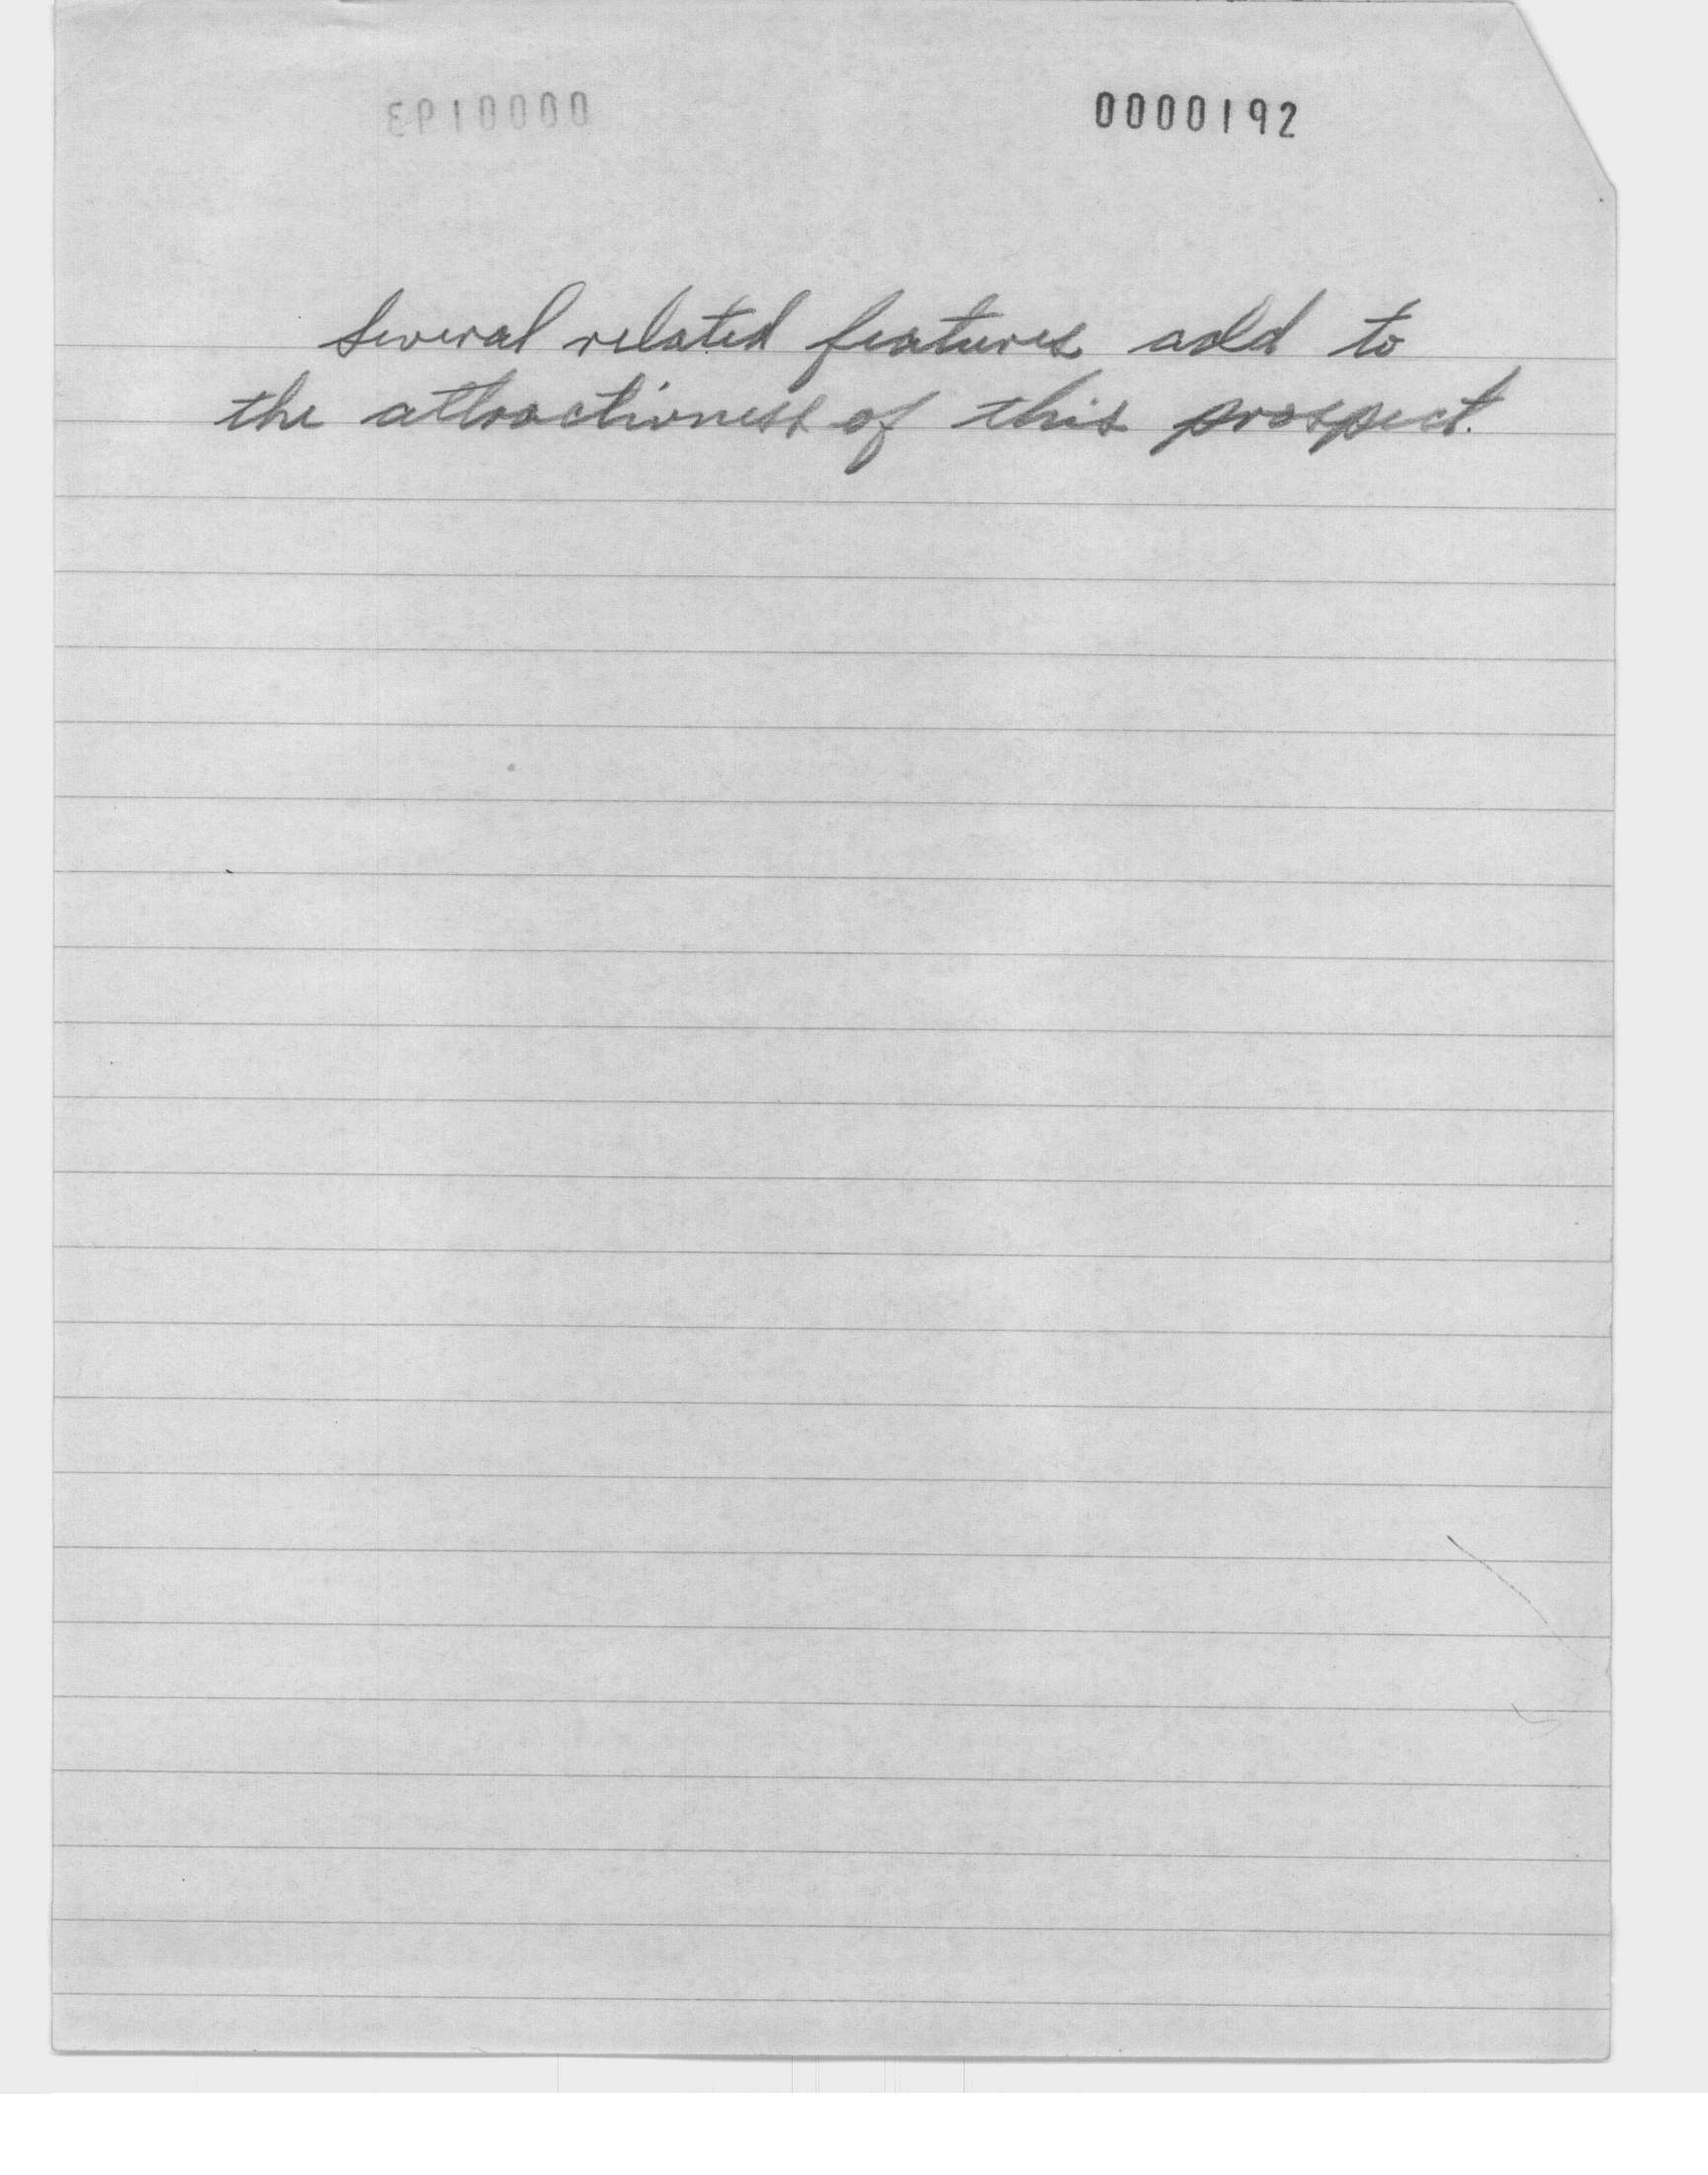 0000192
Several related features add to
the attractivness of this prospect.